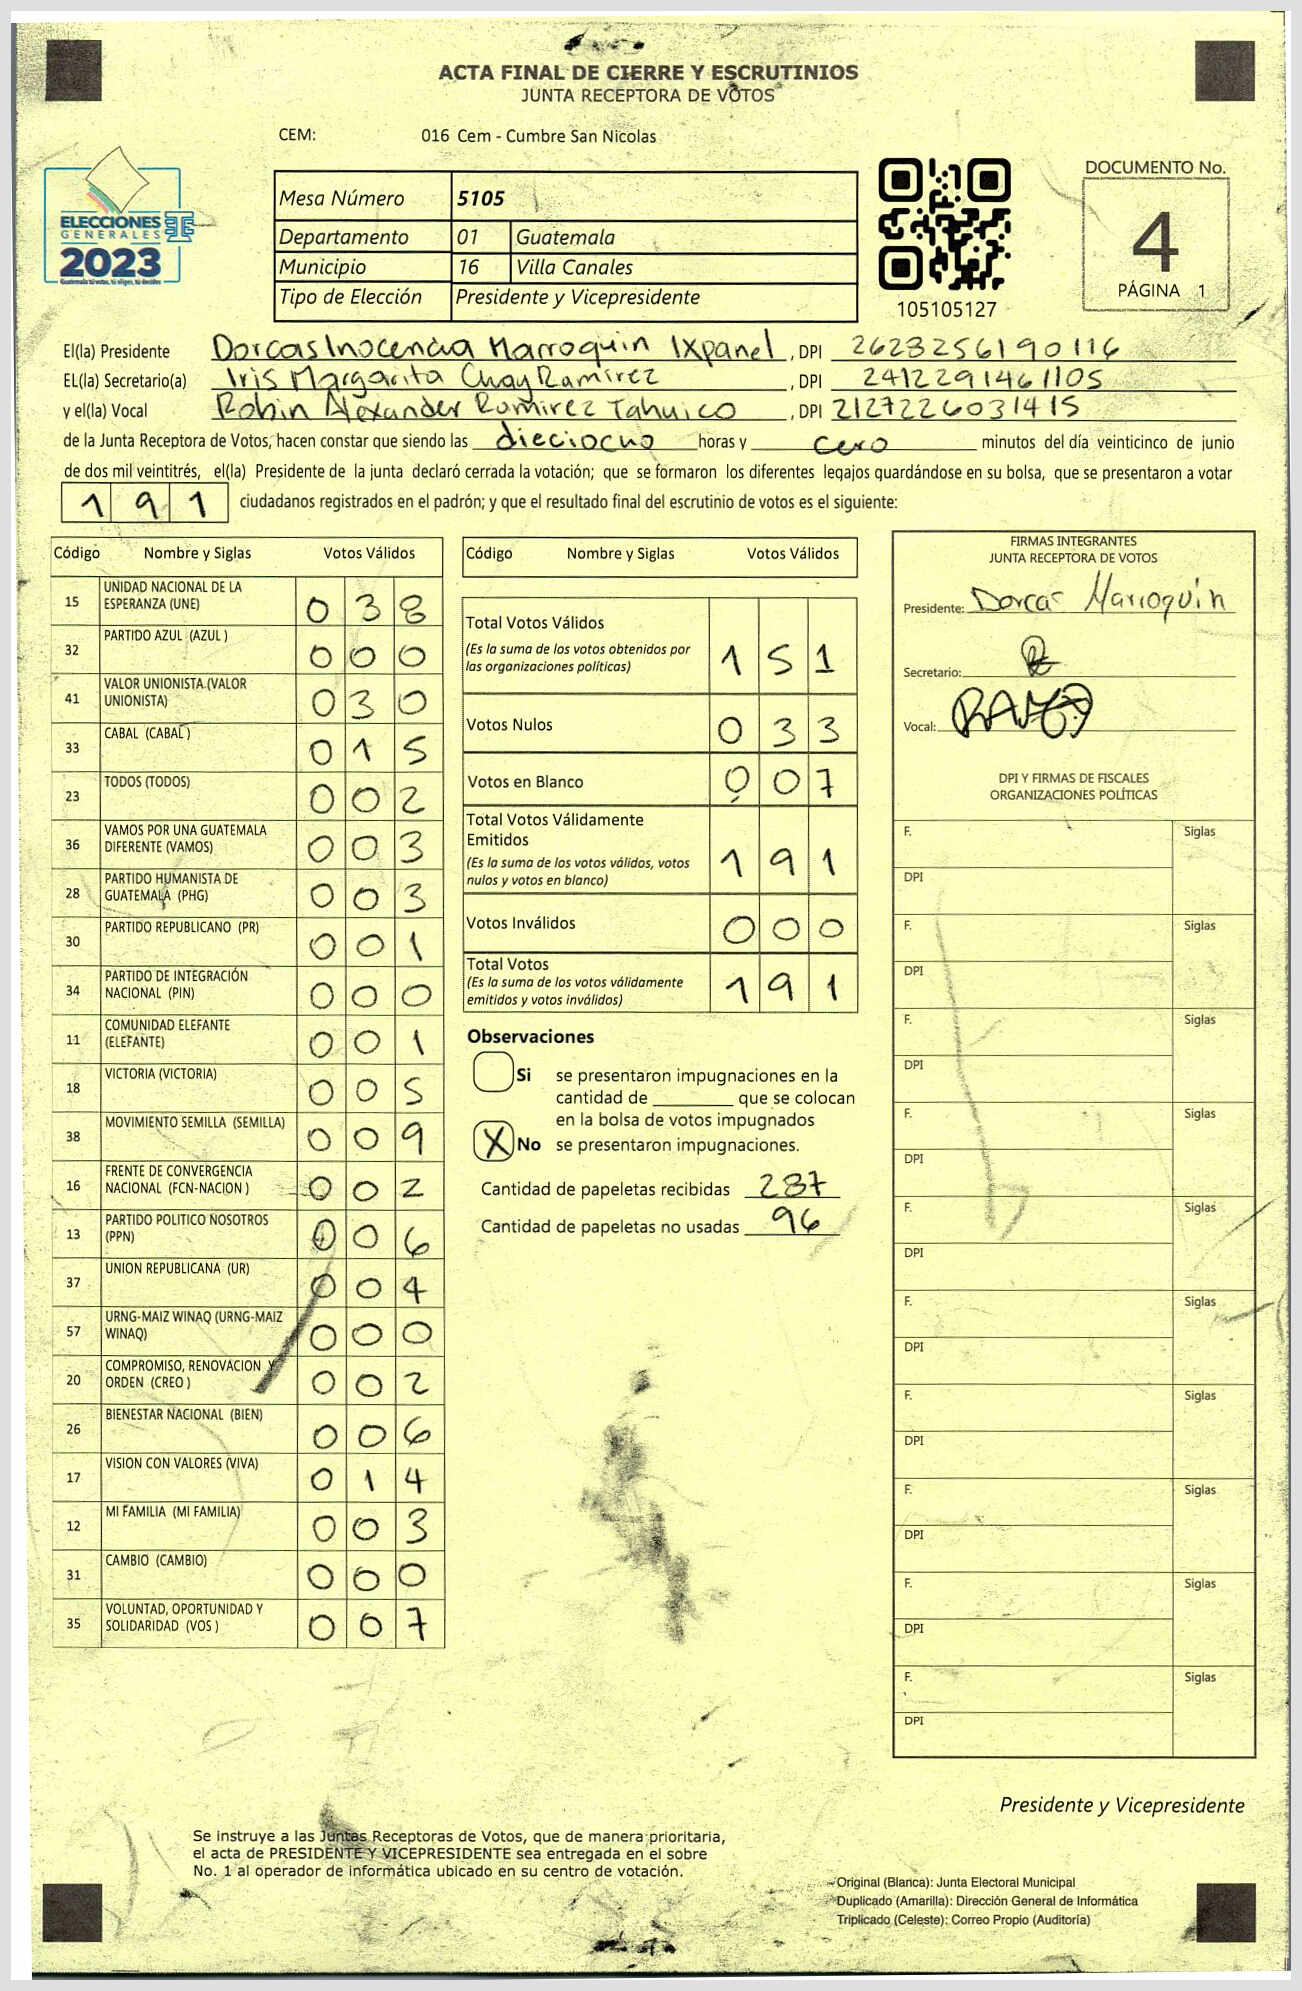 ACTA FINAL DE CIERRE Y ESCRUTINIOS
JUNTA RECEPTORA DE VOTOS
CEM: 016 Cem - Cumbre San Nicolas
ELECCIONES
GENERALES
2023
Guatemala tú votas, tú eliges, tú decides
Mesa Número 5105
Departamento 01 Guatemala
Municipio 16 Villa Canales
Tipo de Elección Presidente y Vicepresidente
105105127
DOCUMENTO No.
4
PÁGINA 1
El(la) Presidente Dorcas Inocencia Marroquin Ixpanel, DPI 2623256190116
EL(la) Secretario(a) Iris Margarita Chay Ramirez, DPI 2412291461105
y el(la) Vocal Robin Alexander Ramirez Tahuico, DPI 2127226031415
de la Junta Receptora de Votos, hacen constar que siendo las dieciocho horas y cero minutos del día veinticinco de junio
de dos mil veintitrés, el(la) Presidente de la junta declaró cerrada la votación; que se formaron los diferentes legajos guardándose en su bolsa, que se presentaron a votar
191 ciudadanos registrados en el padrón; y que el resultado final del escrutinio de votos es el siguiente:
Código Nombre y Siglas Votos Válidos
15 UNIDAD NACIONAL DE LA ESPERANZA (UNE) 038
32 PARTIDO AZUL (AZUL ) 000
41 VALOR UNIONISTA (VALOR UNIONISTA) 030
33 CABAL (CABAL ) 015
23 TODOS (TODOS) 002
36 VAMOS POR UNA GUATEMALA DIFERENTE (VAMOS) 003
28 PARTIDO HUMANISTA DE GUATEMALA (PHG) 003
30 PARTIDO REPUBLICANO (PR) 001
34 PARTIDO DE INTEGRACIÓN NACIONAL (PIN) 000
11 COMUNIDAD ELEFANTE (ELEFANTE) 001
18 VICTORIA (VICTORIA) 005
38 MOVIMIENTO SEMILLA (SEMILLA) 009
16 FRENTE DE CONVERGENCIA NACIONAL (FCN-NACION ) 002
13 PARTIDO POLITICO NOSOTROS (PPN) 006
37 UNION REPUBLICANA (UR) 004
57 URNG-MAIZ WINAQ (URNG-MAIZ WINAQ) 000
20 COMPROMISO, RENOVACION Y ORDEN (CREO ) 002
26 BIENESTAR NACIONAL (BIEN) 006
17 VISION CON VALORES (VIVA) 014
12 MI FAMILIA (MI FAMILIA) 003
31 CAMBIO (CAMBIO) 000
35 VOLUNTAD, OPORTUNIDAD Y SOLIDARIDAD (VOS ) 007
Código Nombre y Siglas Votos Válidos
Total Votos Válidos
(Es la suma de los votos obtenidos por
las organizaciones políticas) 151
Votos Nulos 033
Votos en Blanco 007
Total Votos Válidamente
Emitidos
(Es la suma de los votos válidos, votos
nulos y votos en blanco) 191
Votos Inválidos 000
Total Votos
(Es la suma de los votos válidamente
emitidos y votos inválidos) 191
Observaciones
Si se presentaron impugnaciones en la
cantidad de ________ que se colocan
en la bolsa de votos impugnados
X No se presentaron impugnaciones.
Cantidad de papeletas recibidas 287
Cantidad de papeletas no usadas 96
FIRMAS INTEGRANTES
JUNTA RECEPTORA DE VOTOS
Presidente: Dorcas Marroquin
Secretario:
Vocal:
DPI Y FIRMAS DE FISCALES
ORGANIZACIONES POLÍTICAS
F. Siglas
DPI
F. Siglas
DPI
F. Siglas
DPI
F. Siglas
DPI
F. Siglas
DPI
F. Siglas
DPI
F. Siglas
DPI
F. Siglas
DPI
F. Siglas
DPI
F. Siglas
DPI
Presidente y Vicepresidente
Se instruye a las Juntas Receptoras de Votos, que de manera prioritaria,
el acta de PRESIDENTE Y VICEPRESIDENTE sea entregada en el sobre
No. 1 al operador de informática ubicado en su centro de votación.
Original (Blanca): Junta Electoral Municipal
Duplicado (Amarilla): Dirección General de Informática
Triplicado (Celeste): Correo Propio (Auditoría)